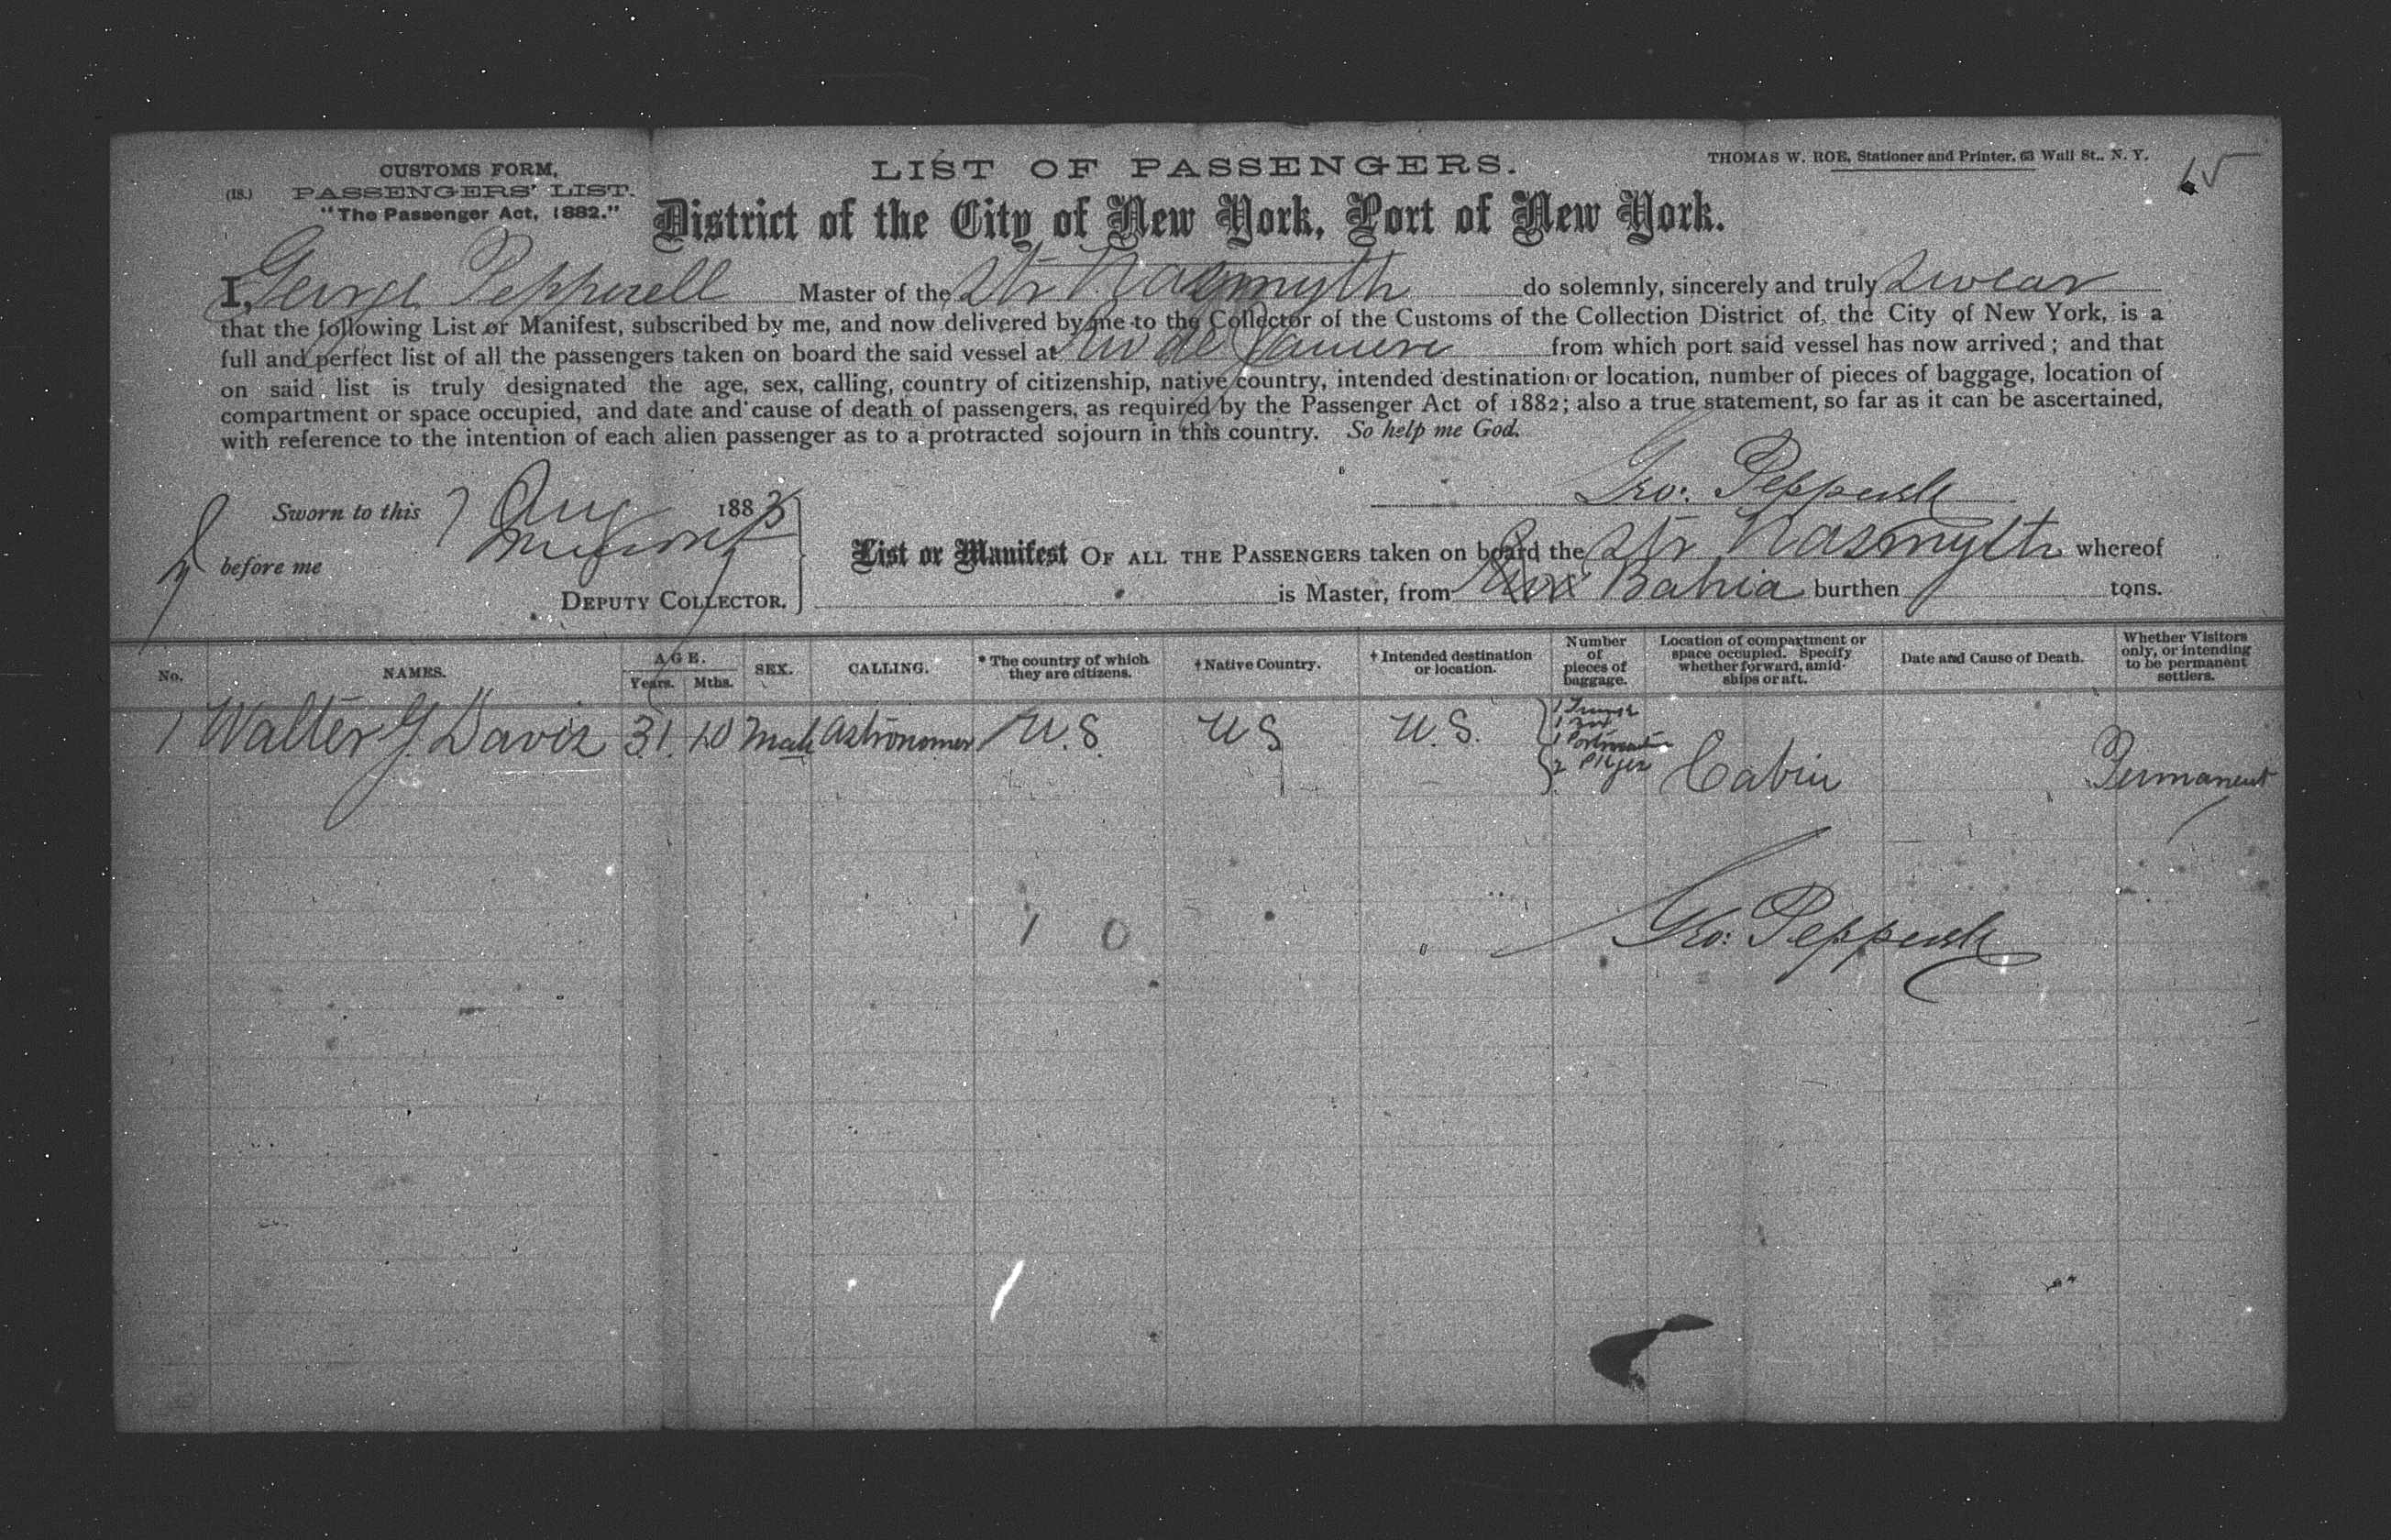 CUSTOMS FORM,
(18.) PASSENGERS' LIST.
"The Passenger Act, 1882."
LIST OF PASSENGERS.
THOMAS W. ROE, Stationer and Printer, 63 Wall St., N. Y.
District of the City of New York, Port of New York.
I, George Pepperell Master of the Str Nasmyth do solemnly, sincerely and truly swear
that the following List or Manifest, subscribed by me, and now delivered by me to the Collector of the Customs of the Collection District of the City of New York, is a
full and perfect list of all the passengers taken on board the said vessel at Rio de Janeiro from which port said vessel has now arrived; and that
on said list is truly designated the age, sex, calling, country of citizenship, native country, intended destination or location, number of pieces of baggage, location of
compartment or space occupied, and date and cause of death of passengers, as required by the Passenger Act of 1882; also a true statement, so far as it can be ascertained,
with reference to the intention of each alien passenger as to a protracted sojourn in this country. So help me God.
Geo: Pepperell
Sworn to this 7 Aug 1883
before me
DEPUTY COLLECTOR.
List or Manifest OF ALL THE PASSENGERS taken on board the Str Nasmyth whereof
is Master, from Bahia burthen tons.
No. NAMES. AGE. Years. Mths. SEX. CALLING. * The country of which they are citizens. † Native Country. † Intended destination or location. Number of pieces of baggage. Location of compartment or space occupied. Specify whether forward, amidships or aft. Date and Cause of Death. Whether Visitors only, or intending to be permanent settlers.
1 Walter G. Davis 31 10 Male Astronomer U.S. U S U.S. 1 Trunk
1 Box
1 Portmanteau
2 Pkges Cabin Permanent
1 0
Geo: Pepperell